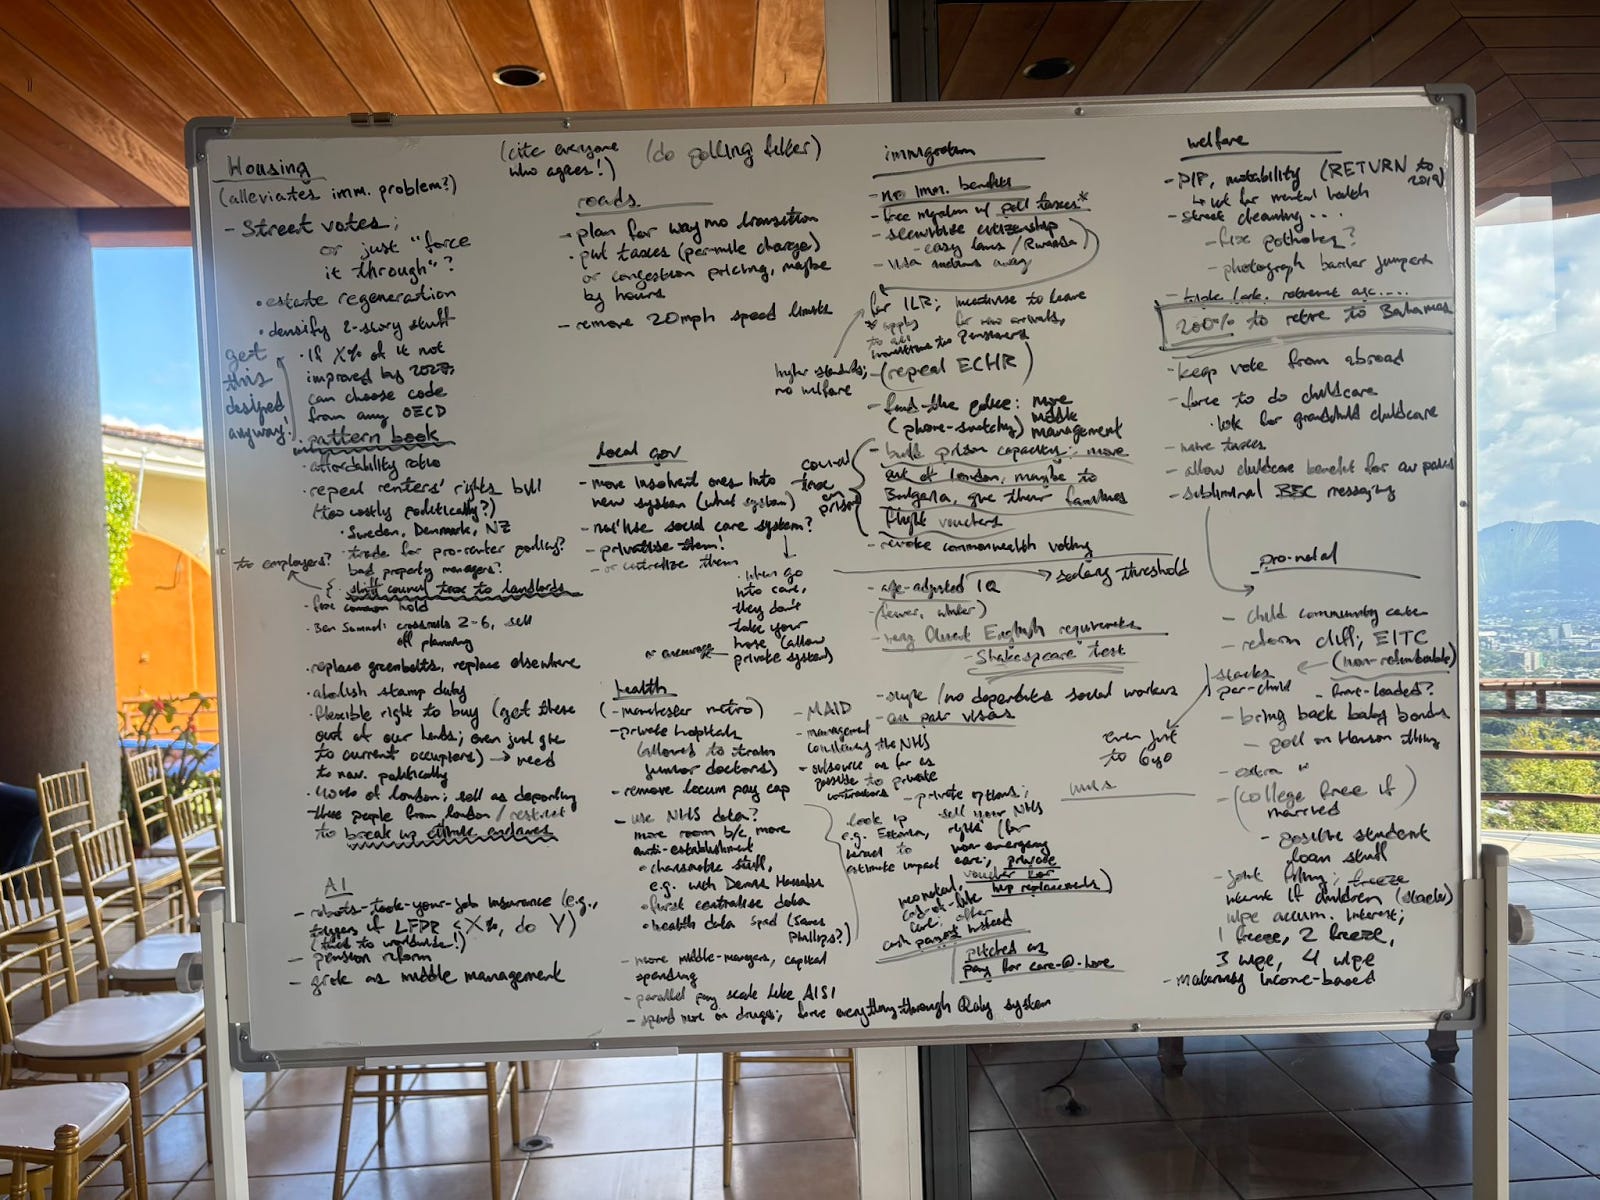 Housing
(alleviates imm. problem?)
- Street votes;
or just "force
it through"?
• estate regeneration
• densify 2-story stuff
• If X% of it not
improved by 2027,
can choose code
from any OECD
pattern book
get
this
designed
anyway!
• affordability ratio
• repeal renters' rights bill
(too costly politically?)
• Sweden, Denmark, NZ
• trade for pro-renter policy?
bad property managers?
to employers?
shift council tax to landlords
• fix common hold
• Ben Samuel: crossrails 2-6, sell
off planning
• replace greenbelts, replace elsewhere
• abolish stamp duty
• flexible right to buy (get these
out of our hands; even just give
to current occupiers) → need
to nav. politically
of London; sell as deporting
these people from London / restrict
to break up enclaves
AI
- robots-took-your-job insurance (e.g.,
triggers if LFPR < X%, do Y)
(tied to worldwide!)
- pension reform
- grok as middle management
(cite everyone
who agrees!)
(do polling filter)
roads
- plan for waymo transition
• put taxes (per-mile charge)
or congestion pricing, maybe
by hours
- remove 20mph speed limits
local gov
- move insolvent ones into
new system (what system)
- nat'lise social care system?
- privatise them!
- or centralise them
• when go
into care,
they don't
take your
house (allow
private system)
or encourage
health
(- manchester metro)
- private hospitals
(allowed to train
junior doctors)
- remove locum pay cap
- use NHS data?
more room b/c more
anti-establishment
• charismatic stuff,
e.g. with Demis Hassabis
• first centralise data
• health data spend (James
Phillips?)
- more middle-managers, capital
spending
- parallel pay scale like AISI
- spend more on drugs; force everything through Qaly system
- MAID
- management
consultancy the NHS
- outsource as far as
possible to private
contractors
look up
e.g. Estonia,
Israel to
estimate impact
- private options;
sell your NHS
rights (for
non-emergency
care; private
voucher for
hip replacements)
neonatal,
end-of-life
care: offer
cash payout instead
pitched as
pay for care-@-home
immigration
- no imm. benefits
- free migration w/ poll taxes*
- securitise citizenship
- easy laws / Rwanda)
- visa auctions away
for ILR; incentivise to leave
* apply
to all
for new arrivals,
higher standards;
no welfare
- (repeal ECHR)
- fund-the police: more
(phone-snatching) middle
management
- build prison capacity: move
out of London, maybe to
Bulgaria, give their families
flight vouchers
council
tax
on
prison
- revoke commonwealth voting
→ salary threshold
- age-adjusted IQ
(fewer, whiter)
- very fluent English requirements
- "Shakespeare" test
- single / no dependents social workers
- au pair visas
even just
to 690
welfare
- PIP, motability (RETURN to
2019)
↳ wk for mental health
- street cleaning ...
- fix potholes?
- photograph barrier jumpers
- triple lock, retirement age....
200% to retire to Bahamas
- keep vote from abroad
- force to do childcare
• wk for grandchild childcare
- more taxes
- allow childcare benefit for au pairs
- subliminal BBC messaging
pro-natal
- child community care
- reform cliff; EITC
(non-refundable)
stacks
per-child
- front-loaded?
- bring back baby bonds
- poll on Hanson thing
- extra "
- (college free if
married)
- positive student
loan stuff
- joint filing; freeze
interest if children (stacks)
wipe accum. interest;
1 freeze, 2 freeze,
3 wipe, 4 wipe
- maternity income-based